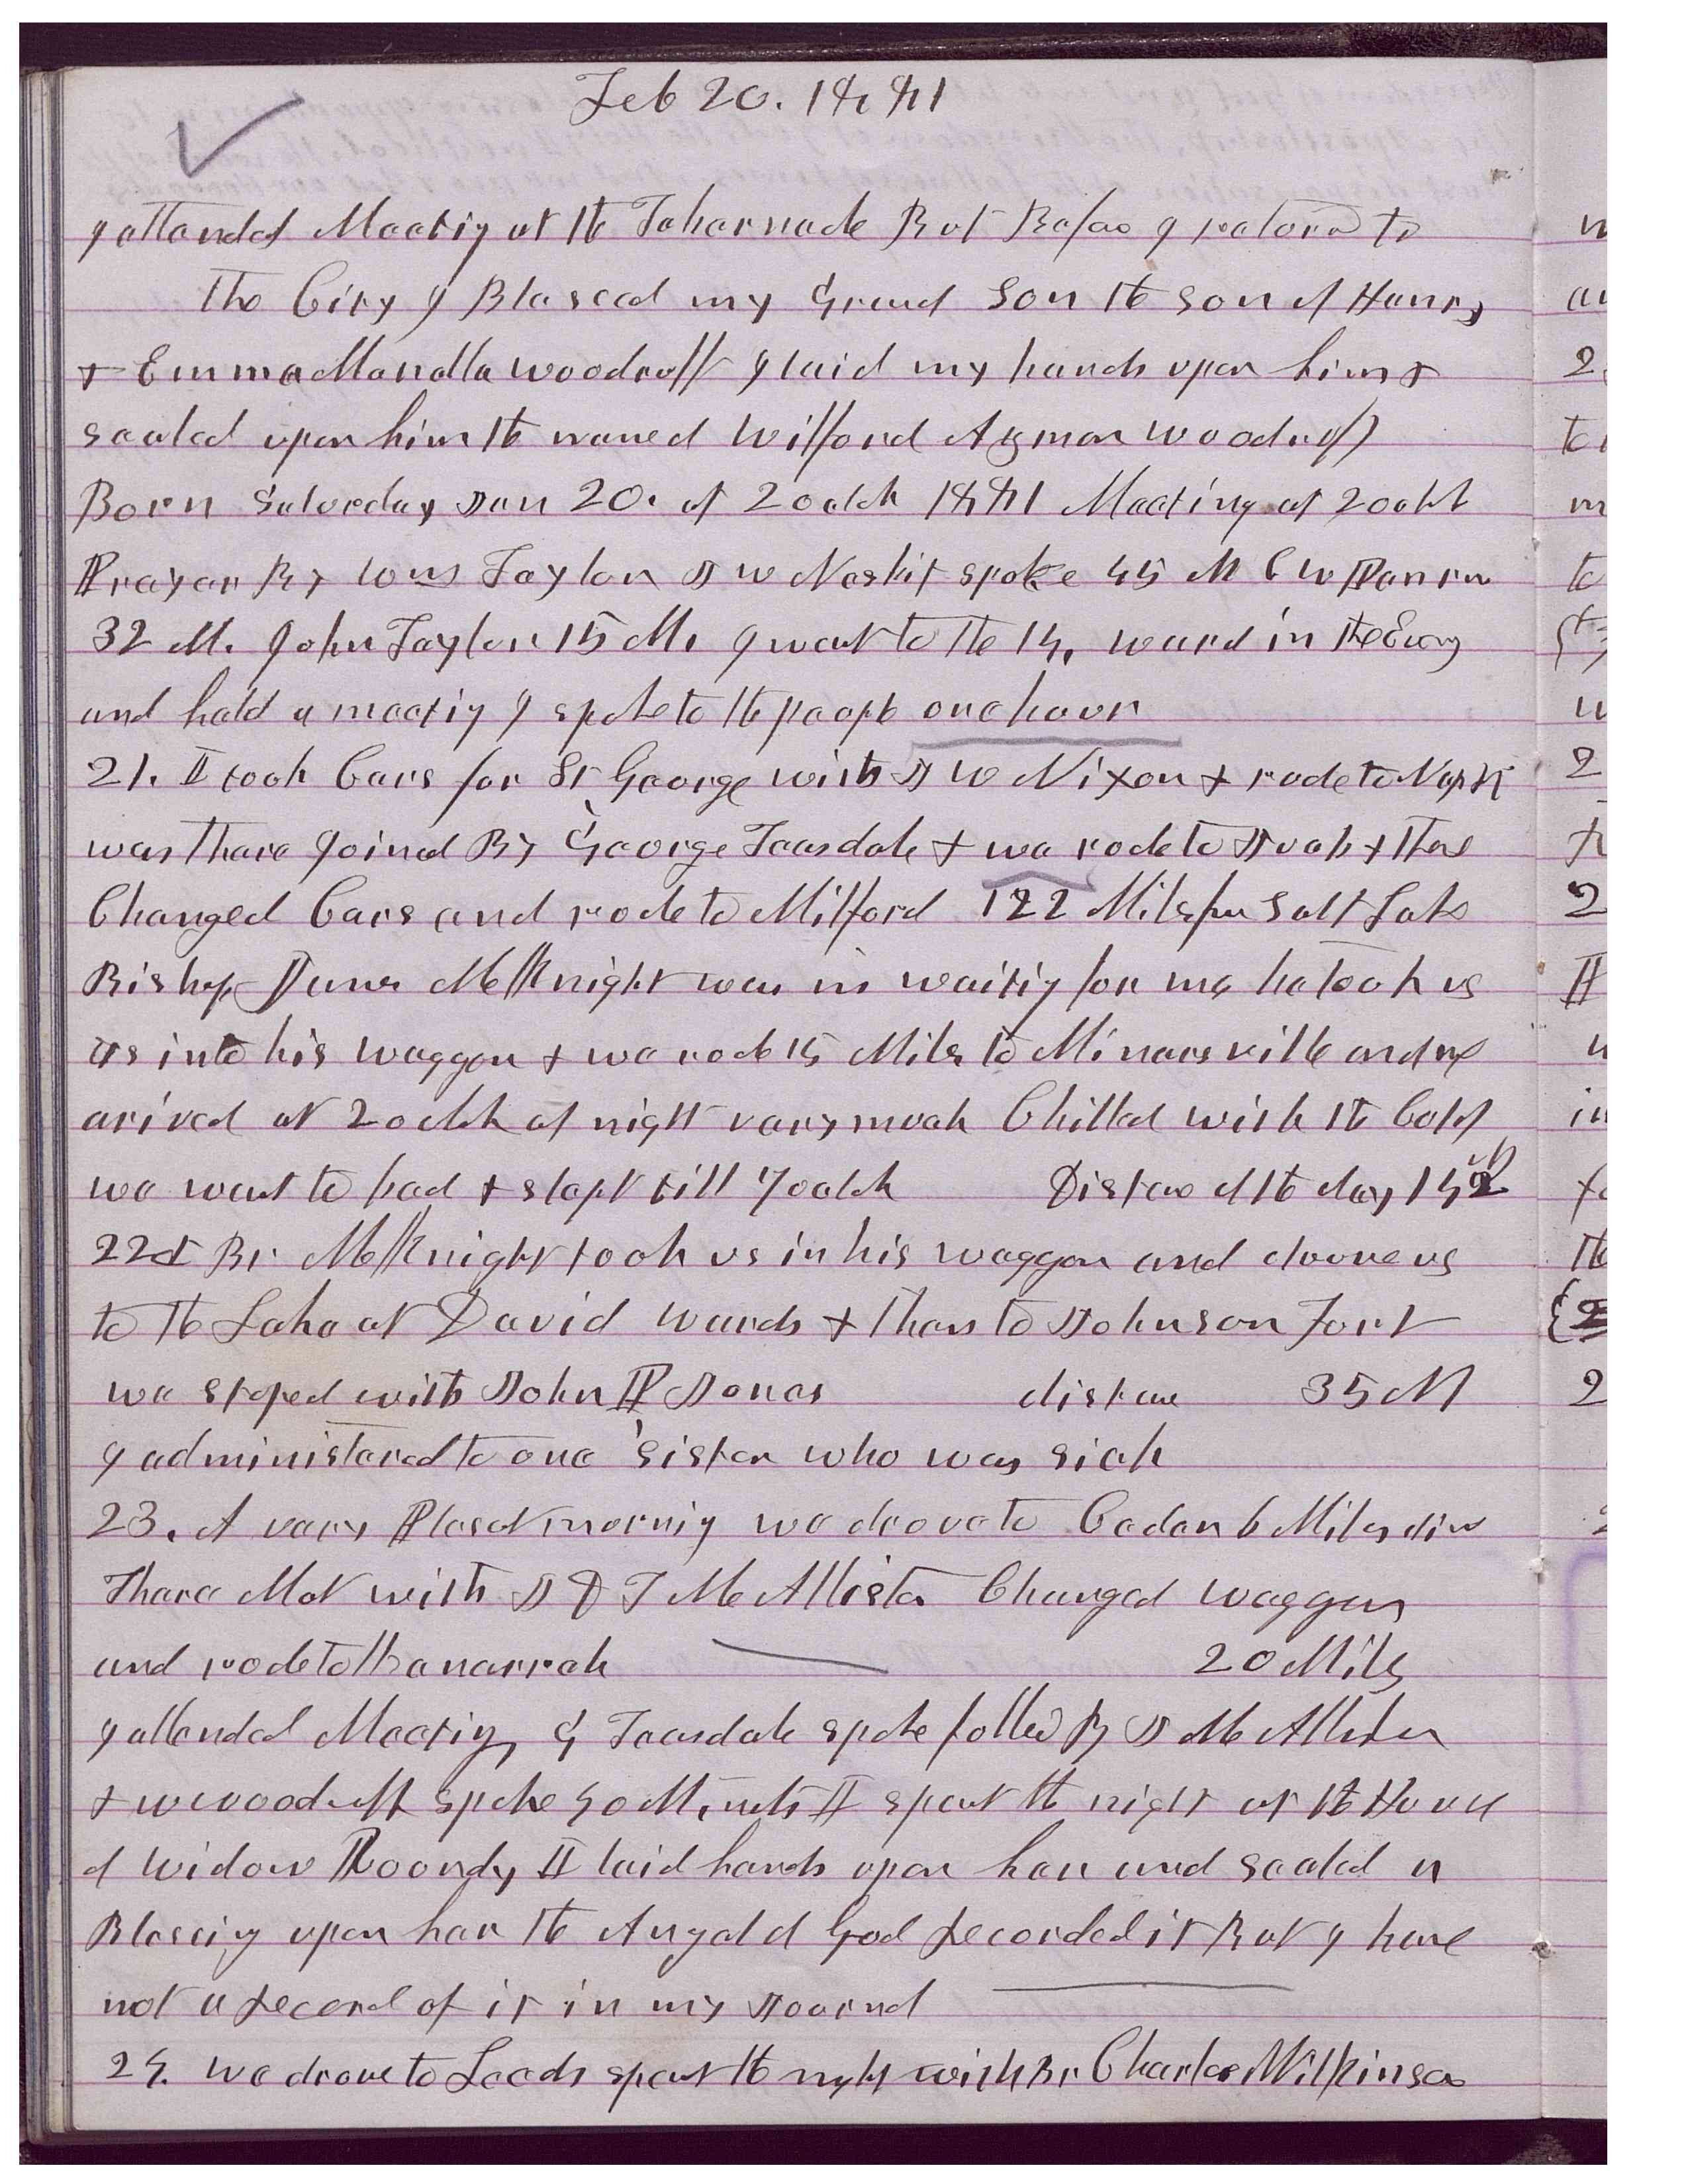 Feb 20. 1881
I attended Meeting at the Tabernacle But Before I return to
the City I Blessed my Grand Son the son of Henry
& Emma Manella Woodruff I laid my hands upon him &
sealed upon him the named Wilford Azmon Woodruff
Born Saturday Jan 20. at 2 oclok 1881 Meeting at 2 oclok
Prayer By Wm Taylor J W Nesbit spoke 45 M C W Penrose
32 M. John Taylor 15 M. I went to the 14. ward in the Eveng
and held a meetig I spoke to the people one hour
21. I took Cars for St George with J W Nixon & rode to Nephi
was there joined By George Teasdale & we rode to Juab & there
Changed Cars and rode to Milford 122 Miles from Salt Lake
Bishop James McKnight was in waitig for me he took us
us into his waggon & we rode 15 Miles to Minersville and we
arived at 2 oclok at night very much Chilled with the Cold
we went to bed & slept till 7 oclok Distance of the day 142
22d Br McKnight took us in his waggon and drove us
to the Lake at David Wards & then to Johnson Fort
we stoped with John P Jones distance 35 M
I administered to one Sister who was sick
23. A very Pleset mornig we drove to Cedar 6 Miles dis
There Met with J D T McAllister Changed waggons
and rode to Kanarrah 20 Miles
I attended Meetig, G Teasdale spoke follwd By J McAllister
& W Woodruff spoke 40 Minuts I spent the night at the House
of Widow Roondy I laid hands upon her and sealed a
Blessig upon her the Angel of God recorded it But I have
not a record of it in my Journal
24. We drove to Leeds spent the night with Br Charles Wilkinson